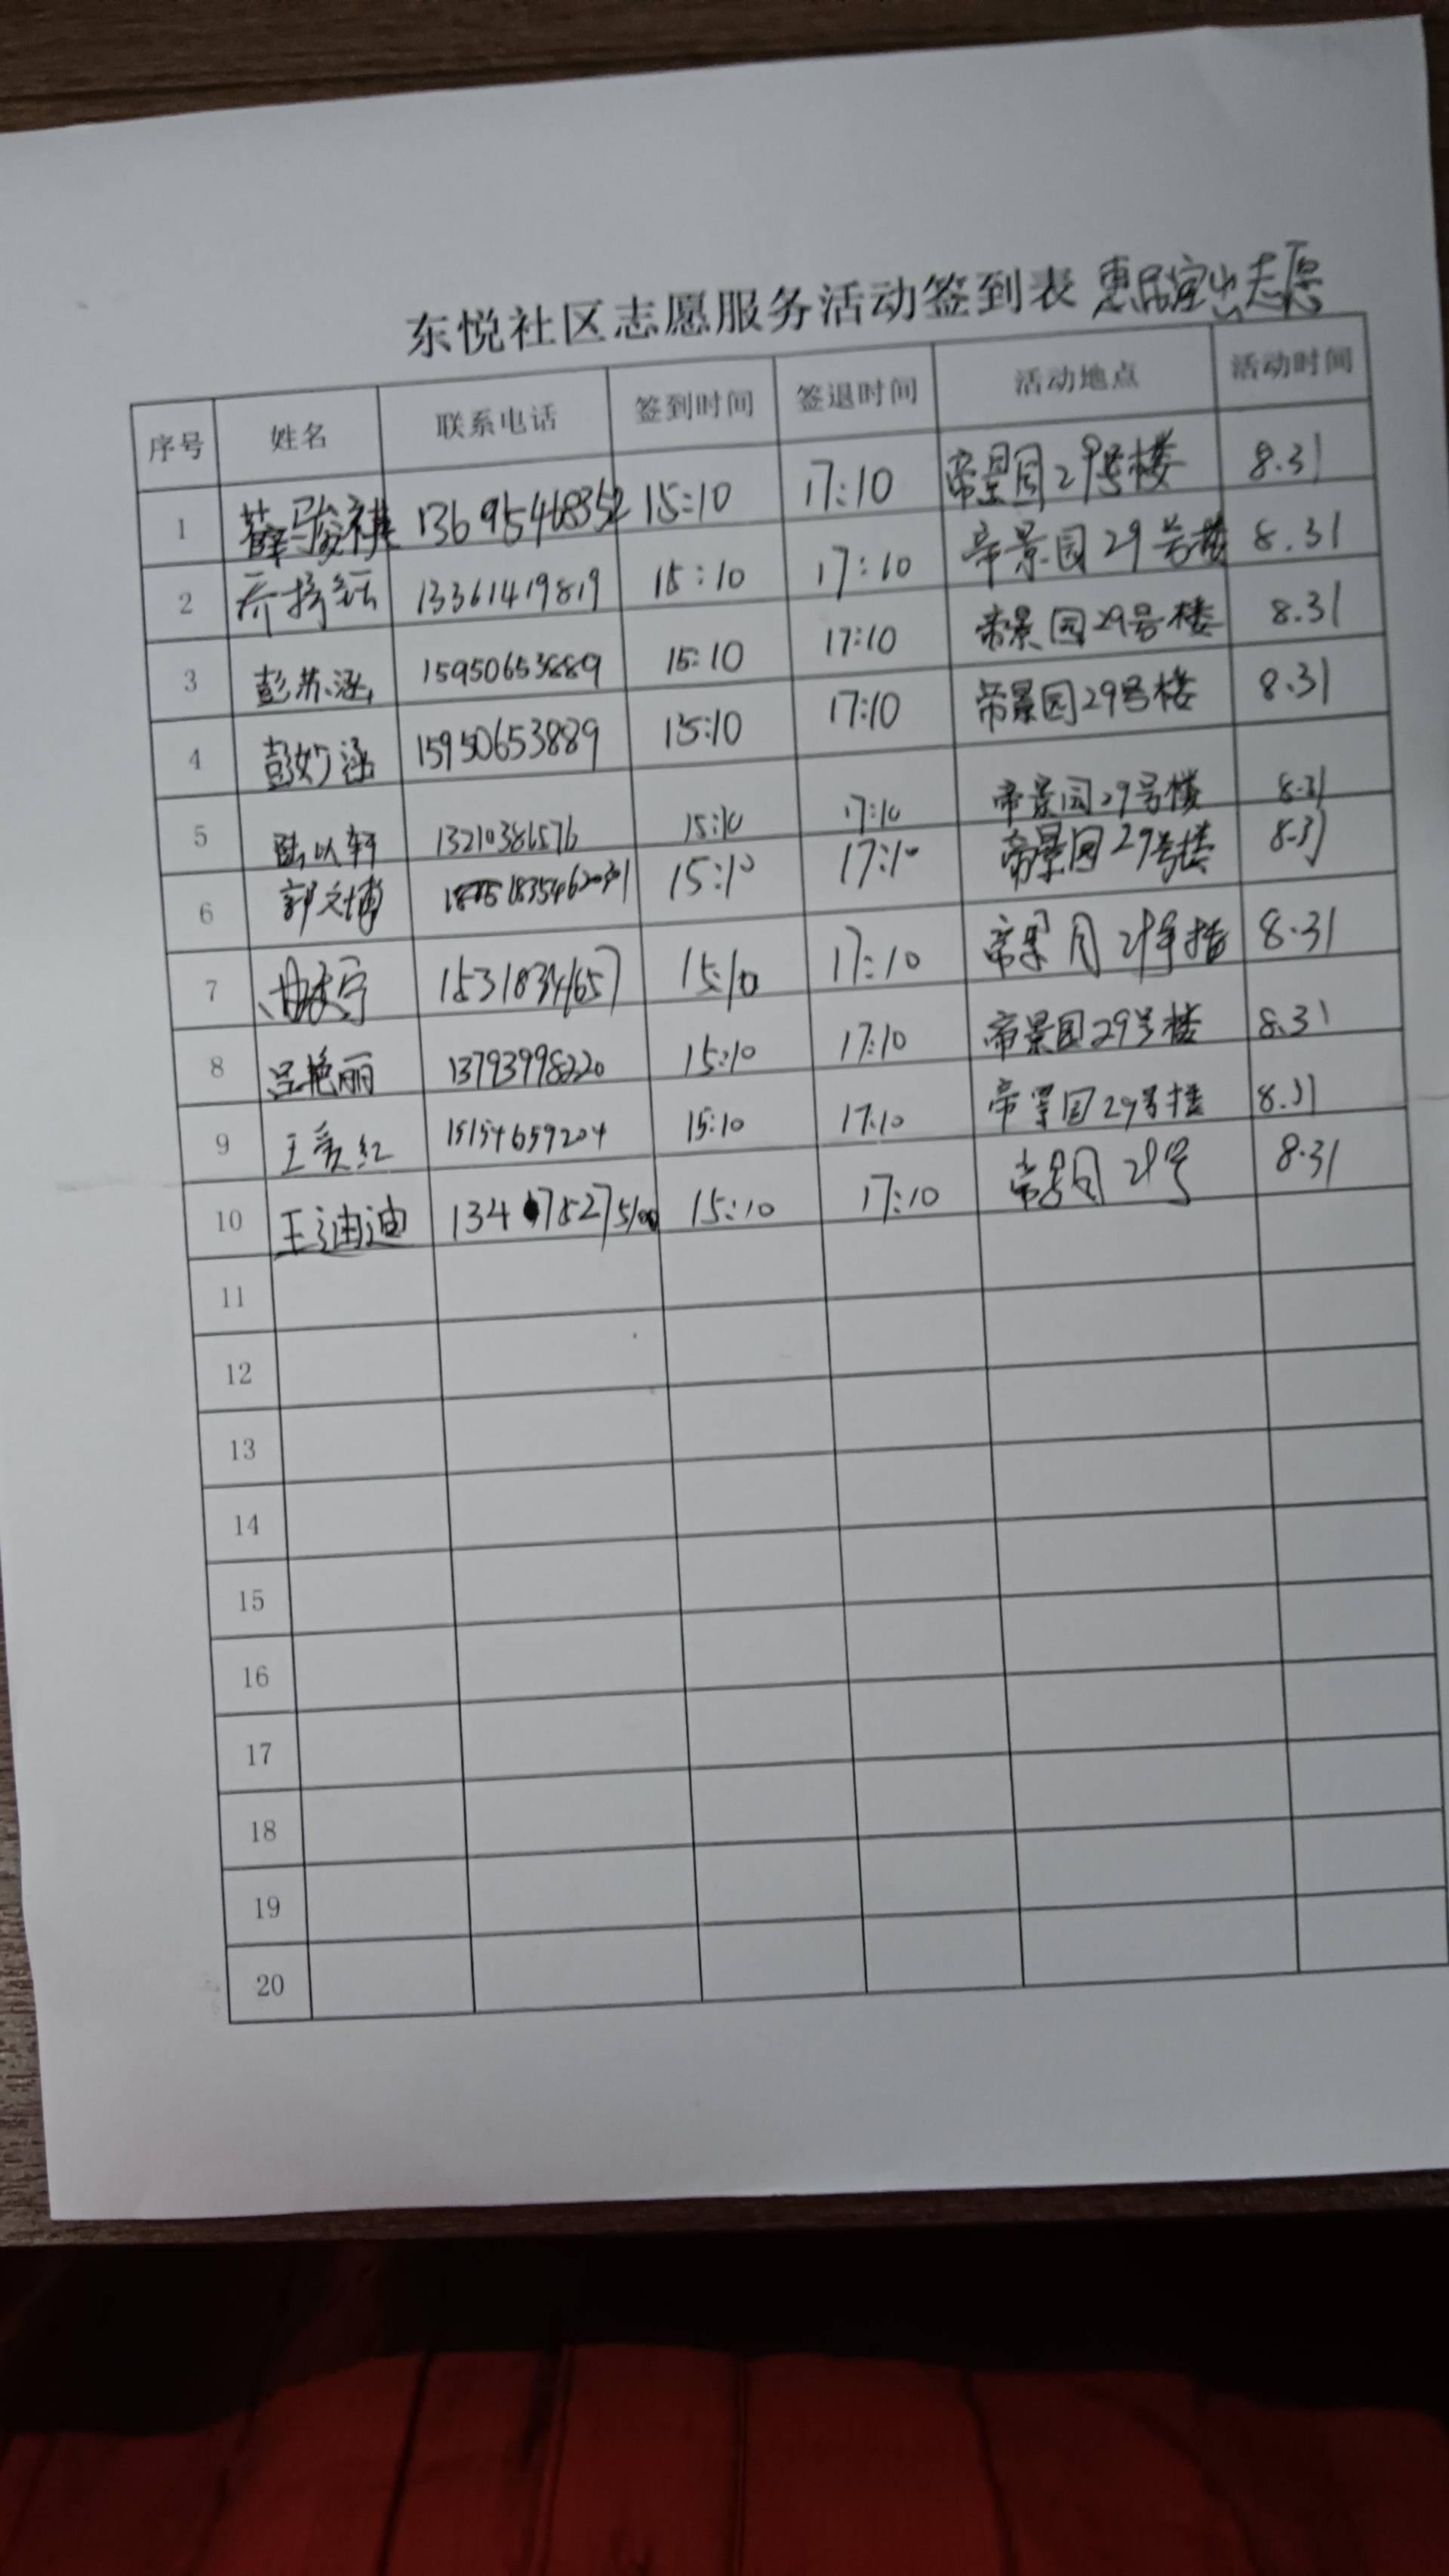 东悦社区志愿服务活动签到表 惠民演出志愿
序号 姓名 联系电话 签到时间 签退时间 活动地点 活动时间
1 薛骏祺 13695468352 15:10 17:10 帝景园29号楼 8.31
2 13361419819 15:10 17:10 帝景园29号楼 8.31
3 彭苏涵 15950653889 15:10 17:10 帝景园29号楼 8.31
4 彭妙涵 15950653889 15:10 17:10 帝景园29号楼 8.31
5 陆以轩 13210386576 15:10 17:10 帝景园29号楼 8.31
6 郭文博 15:10 17:10 帝景园29号楼 8.31
7 15318341657 15:10 17:10 帝景园29号楼 8.31
8 吕艳丽 13793998220 15:10 17:10 帝景园29号楼 8.31
9 王爱红 15154659204 15:10 17:10 帝景园29号楼 8.31
10 王迪迪 15:10 17:10 帝景园29号 8.31
11
12
13
14
15
16
17
18
19
20